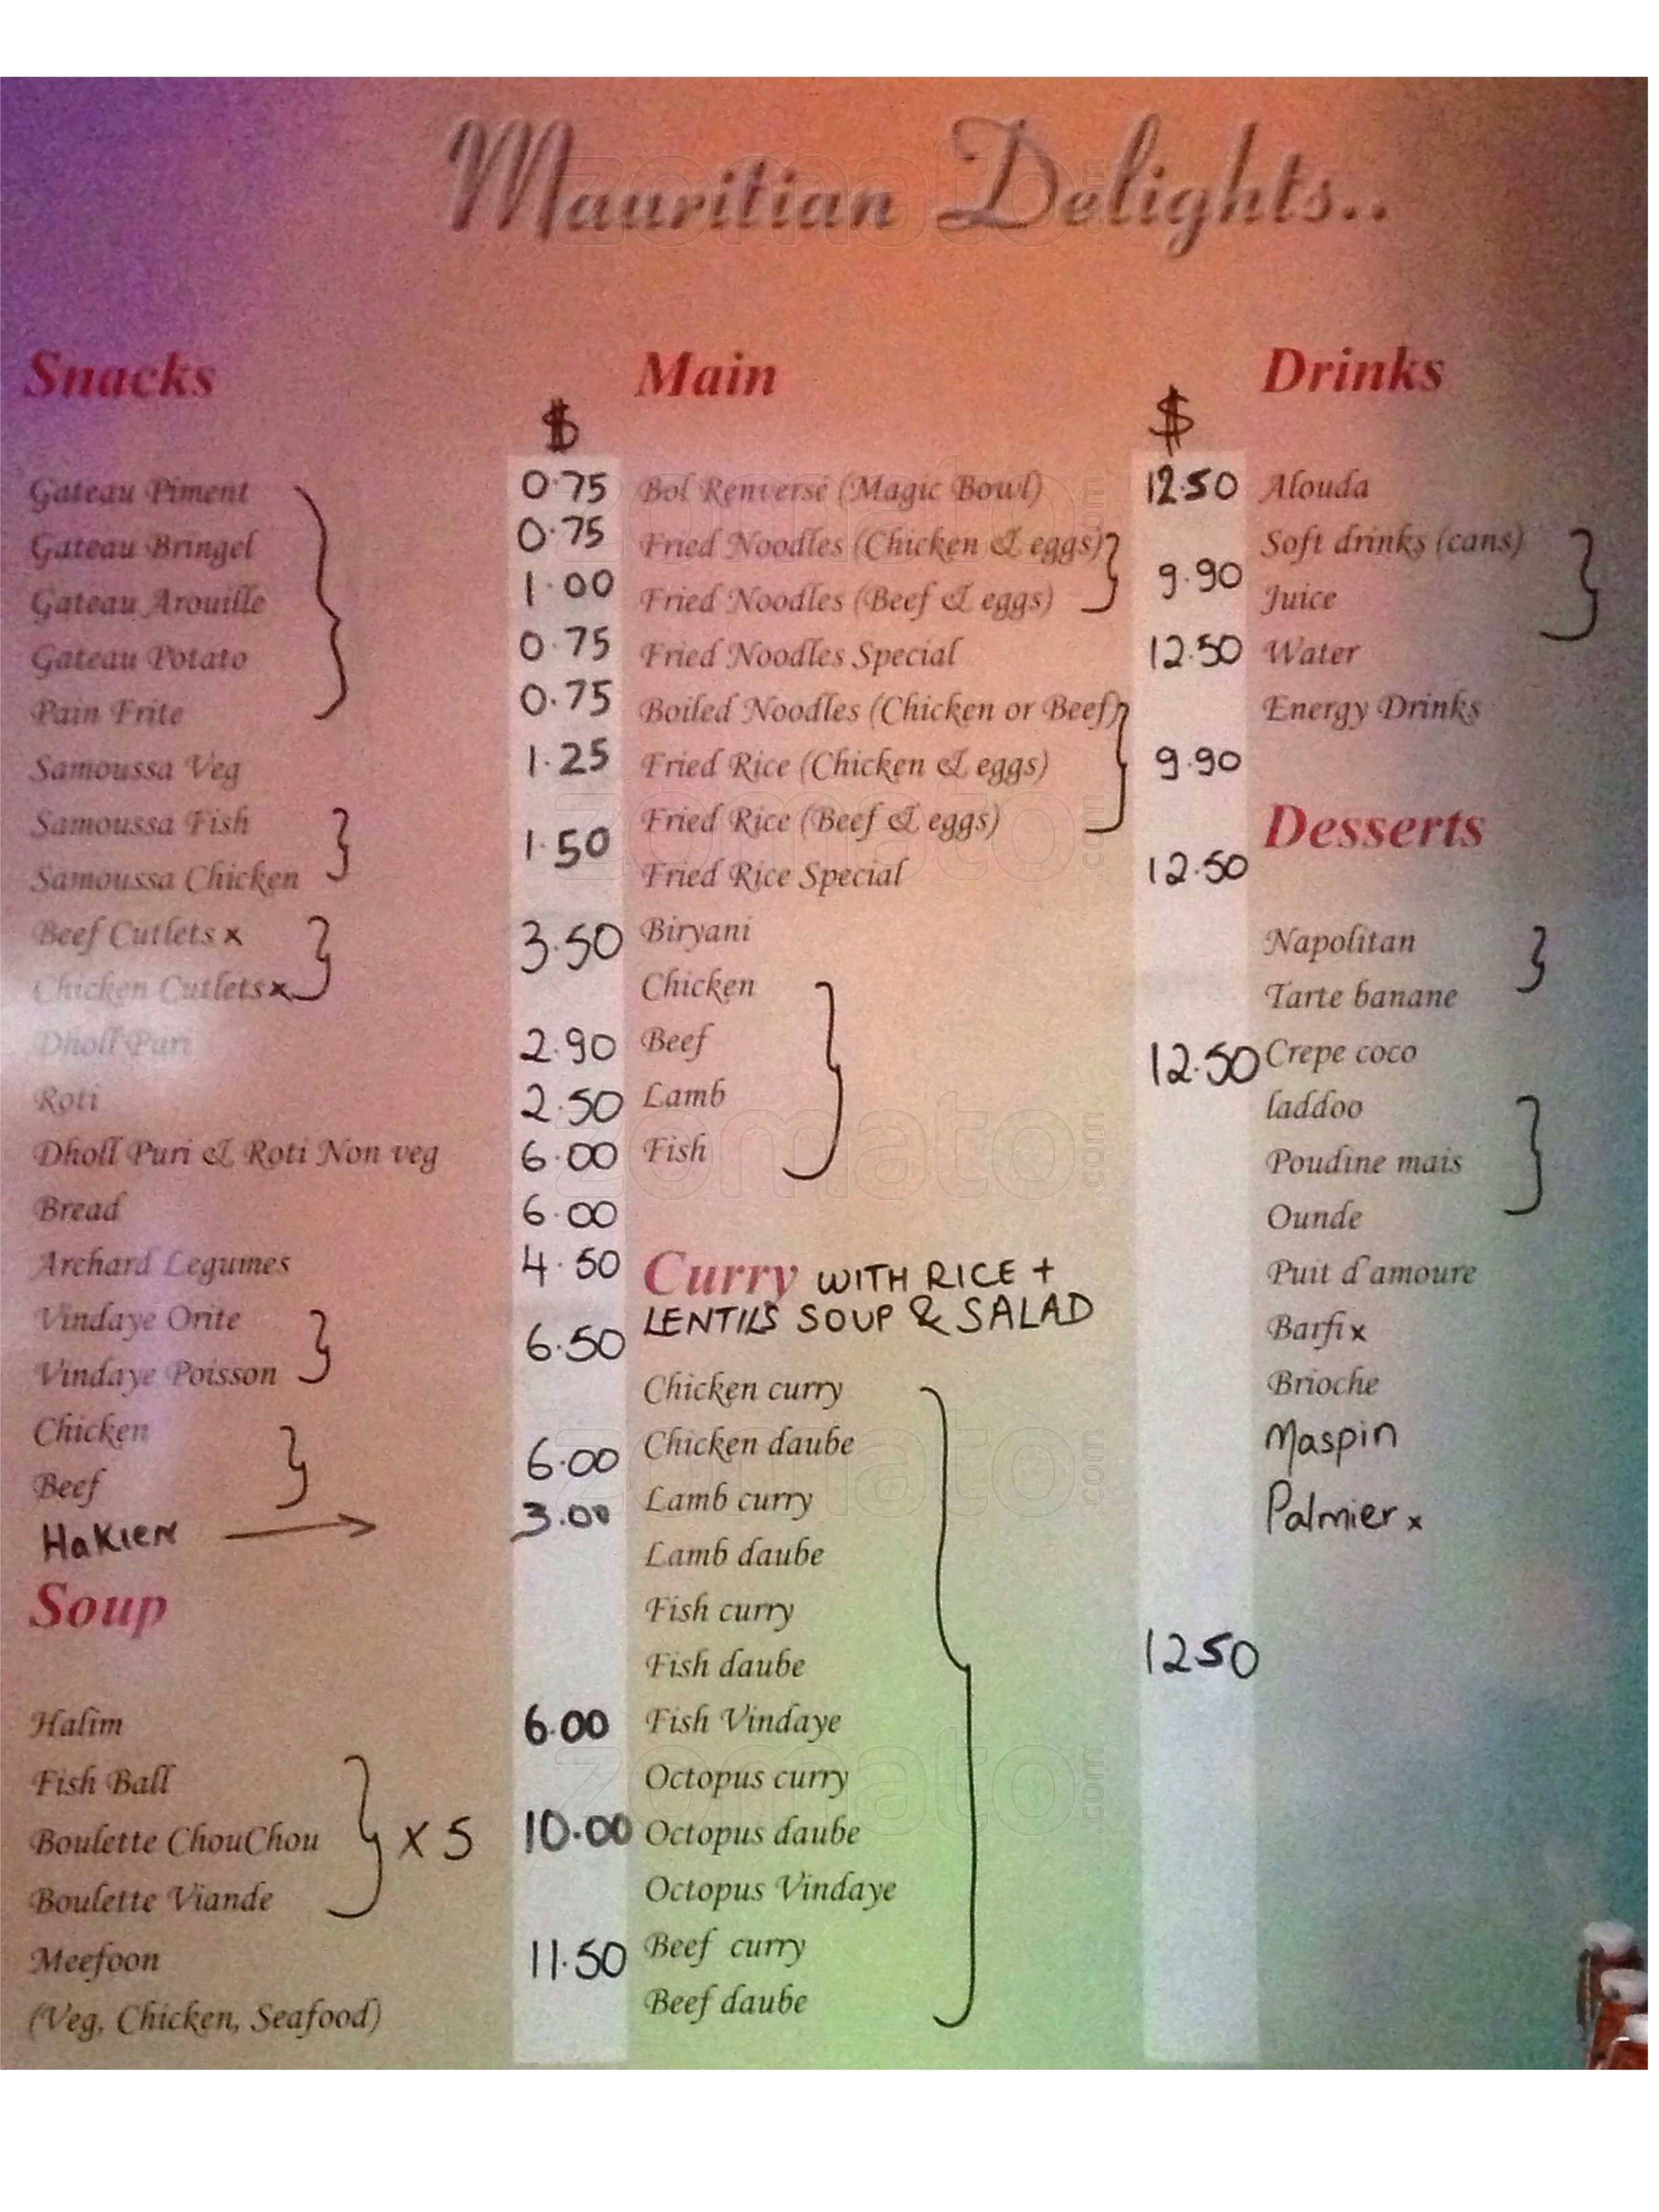 Mauritian Delights..
Snacks
$
Gateau Piment 0.75
Gateau Bringel 0.75
Gateau Arouille 1.00
Gateau Potato 0.75
Pain Frite 0.75
Samoussa Veg 1.25
Samoussa Fish
Samoussa Chicken 1.50
Beef Cutlets x
Chicken Cutlets x 3.50
Dholl Puri 2.90
Roti 2.50
Dholl Puri & Roti Non veg 6.00
Bread 6.00
Archard Legumes 4.50
Vindaye Orite
Vindaye Poisson 6.50
Chicken
Beef 6.00
Hakien → 3.00
Soup
Halim 6.00
Fish Ball
Boulette ChouChou x 5 10.00
Boulette Viande
Meefoon 11.50
(Veg, Chicken, Seafood)
Main
$
Bol Renversé (Magic Bowl) 12.50
Fried Noodles (Chicken & eggs)
Fried Noodles (Beef & eggs) 9.90
Fried Noodles Special 12.50
Boiled Noodles (Chicken or Beef)
Fried Rice (Chicken & eggs) 9.90
Fried Rice (Beef & eggs)
Fried Rice Special 12.50
Biryani
Chicken
Beef 12.50
Lamb
Fish
Curry WITH RICE +
LENTILS SOUP & SALAD
Chicken curry
Chicken daube
Lamb curry
Lamb daube
Fish curry
Fish daube 1250
Fish Vindaye
Octopus curry
Octopus daube
Octopus Vindaye
Beef curry
Beef daube
Drinks
Alouda
Soft drinks (cans)
Juice
Water
Energy Drinks
Desserts
Napolitan
Tarte banane
Crepe coco
laddoo
Poudine mais
Ounde
Puit d'amoure
Barfi x
Brioche
Maspin
Palmier x
zomato.com
zomato.com
zomato.com
zomato.com
zomato.com
zomato.com